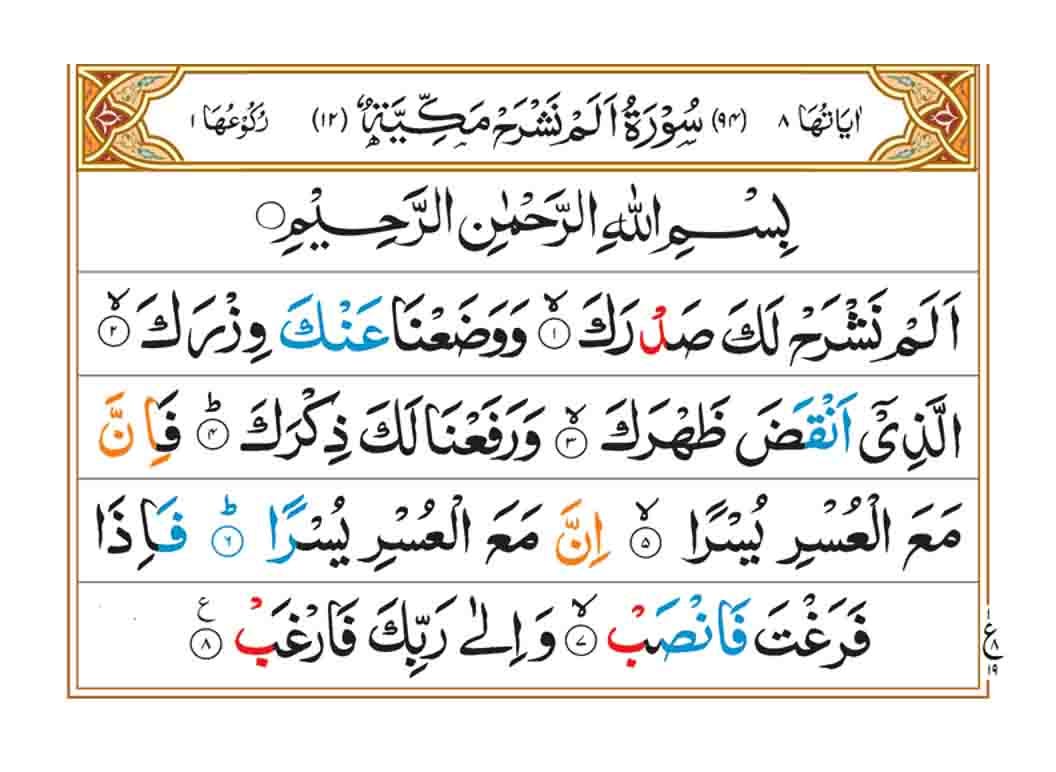 اٰیَاتُهَا ٨ (٩٤) سُوْرَةُ اَلَمْ نَشْرَحْ مَكِّیَّةٌ (١٢) رُكُوْعُهَا ١
بِسْمِ اللّٰهِ الرَّحْمٰنِ الرَّحِیْمِ ○
اَلَمْ نَشْرَحْ لَكَ صَدْرَكَ ۙ﴿١﴾ وَوَضَعْنَا عَنْكَ وِزْرَكَ ۙ﴿٢﴾
الَّذِیْۤ اَنْقَضَ ظَهْرَكَ ۙ﴿٣﴾ وَرَفَعْنَا لَكَ ذِكْرَكَ ؕ﴿٤﴾ فَاِنَّ
مَعَ الْعُسْرِ یُسْرًا ۙ﴿٥﴾ اِنَّ مَعَ الْعُسْرِ یُسْرًا ؕ﴿٦﴾ فَاِذَا
فَرَغْتَ فَانْصَبْ ۙ﴿٧﴾ وَاِلٰی رَبِّكَ فَارْغَبْ ﴿٨﴾ ع
١
ع
٨
١٩